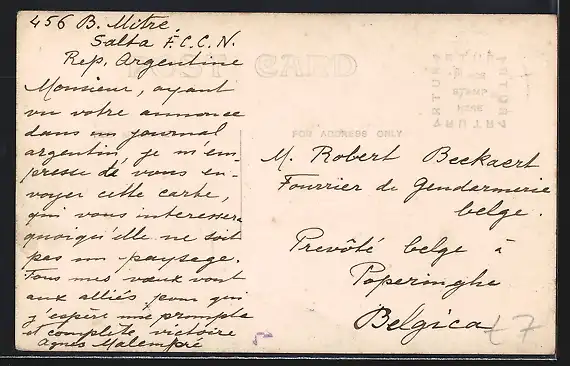 456 B. Mitre.
Salta F.C.C.N.
Rep. Argentine
Monsieur, ayant
vu votre annonce
dans un journal
argentin je m'em-
presse de vous en-
voyer cette carte,
qui vous interessera
quoiqu'elle ne soit
pas un paysage.
Tous mes vœux vont
aux alliés pour qui
j'espère une prompte
et complète victoire
Agnes Malempré
POST CARD
FOR ADDRESS ONLY
M. Robert Beckaert
Fourrier de Gendarmerie
belge.
Prevôté belge à
Poperinghe
Belgica
STAMP
HERE